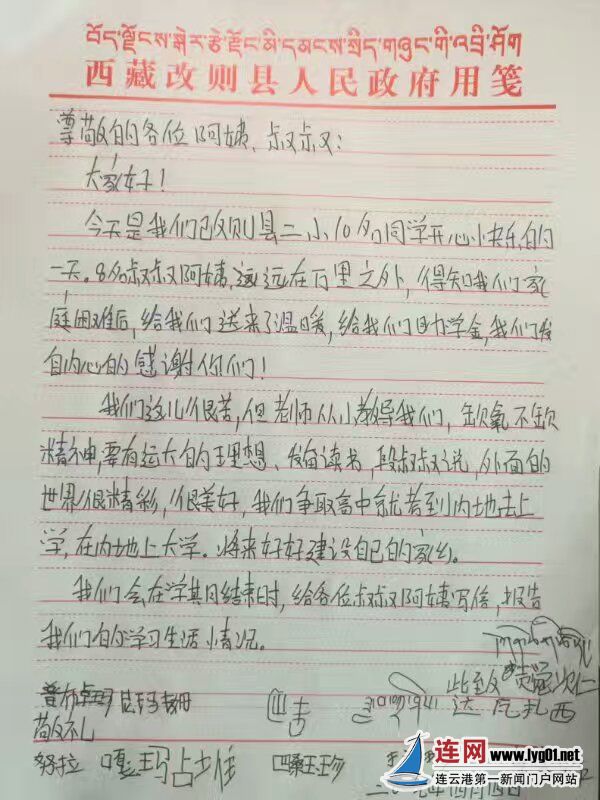 བོད་ལྗོངས་སྒེར་རྩེ་རྫོང་མི་དམངས་སྲིད་གཞུང་གི་འབྲི་ཤོག
西藏改则县人民政府用笺
尊敬的各位阿姨、叔叔:
大家好!
今天是我们改则县二小10名同学开心快乐的
一天。8名叔叔阿姨,远远在万里之外,得知我们家
庭困难后,给我们送来了温暖,给我们助学金,我们发
自内心的感谢你们!
我们这儿很苦,但老师从小教导我们,缺氧不缺
精神,要有远大的理想、发奋读书,段叔叔说,外面的
世界很精彩,很美好,我们争取高中就考到内地去上
学,在内地上大学。将来好好建设自己的家乡。
我们会在学期结束时,给各位叔叔阿姨写信,报告
我们的学习生活情况。
此致
普布卓玛
达瓦扎西
敬礼
努拉 嘎玛占堆
连网 www.lyg01.net
连云港第一新闻门户网站